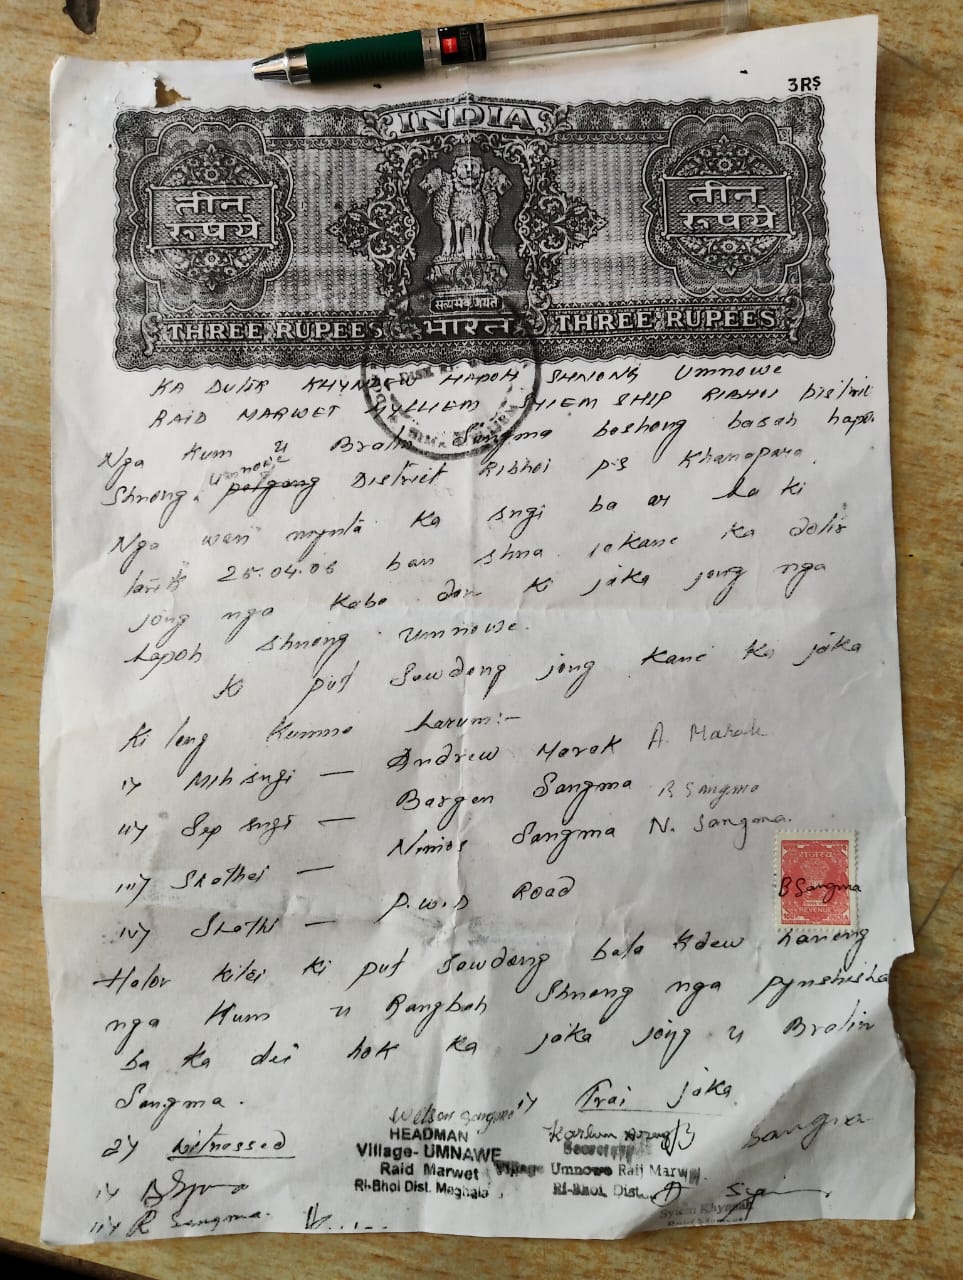 3RS
INDIA
तीन
रूपये
तीन
रूपये
सत्यमेव जयते
THREE RUPEES भारत THREE RUPEES
KA DULIR KHYNDEW HAPOH SHNONG UMNOWE
RAID MARWET MYLLIEM SYIEM SHIP RIBHOI District
Nga Kum u Bralin Sangma bashong basah hapoh
Shnong Umnowe District Ribhoi P.S Khanapara
Nga wan mynta Ka sngi ba ar ha ki
tarik 25.04.06 ban shna iakane ka dolir
jong nga kaba don ki jaka jong nga
hapoh Shnong Umnowe.
Ki pud Sawdong jong kane ka jaka
Ki long Kumno harum:-
i) Mihsngi — Andrew Marak A. Marak
ii) Sep sngi — Bargen Sangma B Sangma
iii) Shathei — Nimos Sangma N. Sangma.
iv) Shathi — P.W.D Road
B Sangma
REVENUE INDIA
Halor kitei ki pud sawdong bala kdew haneng
nga Kum u Rangbah Shnong nga pynshisha
ba ka dei hok ka jaka jong u Bralin
Sangma.
1) Trai jaka
B Sangma
2) Witnessed
Welson Sangma
HEADMAN
Village- UMNAWE
Raid Marwet
Ri-Bhoi Dist. Meghala
Secretary
Village Umnowe Raij Marwet
Ri-Bhoi, Dist.
Syiem Khynnah
i)
ii) R Sangma.